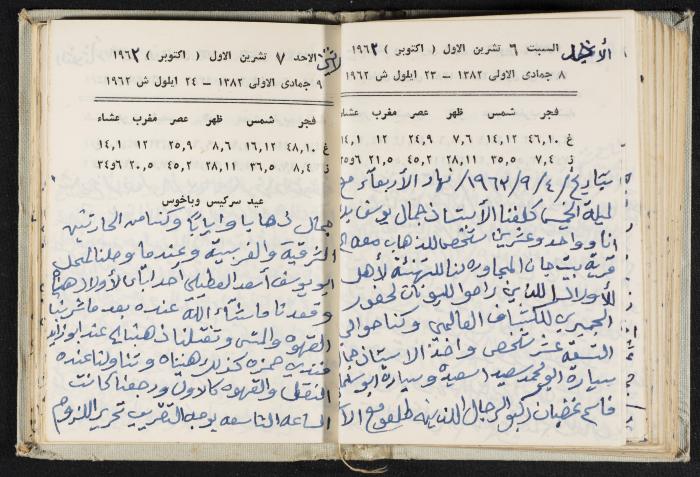 السبت ٦ تشرين الاول ( اكتوبر ) ١٩٦٢
٨ جمادى الاولى ١٣٨٢ – ٢٣ ايلول ش ١٩٦٢
فجر شمس ظهر عصر مغرب عشاء
غ ١٠,٤٦ ١٢,١٤ ٦,٧ ٩,٢٤ ١٢ ١,١٤
ز ٤,٧ ٥,٣٥ ١١,٢٨ ٢,٤٥ ٥,٢١
بتاريخ ٤/٩/١٩٦٣ نهار الأربعاء مع
ليلة الخميس كلفنا الأستاذ جمال يوسف
انا وواحد وعشرين شخص للذهاب معه
قرية بيت جان المجاورة لنا للتهنئة لأهل
الأولاد الذين راحوا لليونان لحضور
الجمبري للكشاف العالمي وكنا حوالي
التسعة عشر شخص واخذ الاستاذ جمال
سيارة ابو محمد سعيد اسعيد وسيارة ابو
قاسم غضبان ركبو الرجال اللذين طلعو مع
الاحد ٧ تشرين الاول ( اكتوبر ) ١٩٦٢
٩ جمادى الاولى ١٣٨٢ – ٢٤ ايلول ش ١٩٦٢
فجر شمس ظهر عصر مغرب عشاء
غ ١٠,٤٨ ١٢,١٦ ٦,٨ ٩,٢٥ ١٢ ١,١٤
ز ٤,٨ ٥,٣٦ ١١,٢٨ ٢,٤٥ ٥,٢٠ ٦,٣٤
عيد سركيس وباخوس
جمال ذهابا وايابا وكنا من الحارتين
الشرقية والغربية وعندما وصلنا المحل
ابو يوسف أسعد العطيلي أحد اباي الأولاد
وقعدنا ماشاء الله عنده بعد ما شربنا
القهوه والمتي وتفتلنا ذهبنا الى عند ابو زايد
حمزه كذلك وتناولنا عنده
النقل والقهوه كالاول ورجعنا كانت
الساعه التاسعه بوجه التقريب تحرير اللزوم